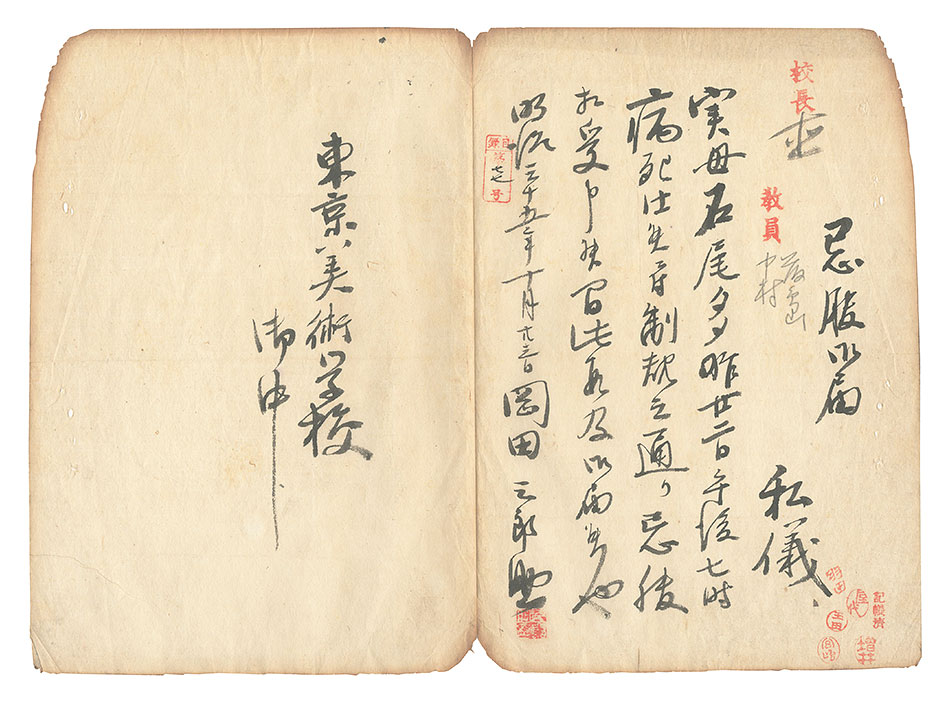 校長
教員
中村
忌服御届
私儀
実母石尾夕夕昨廿二日午後七時
病死仕候ニ付制規之通り忌服
相受申候間此段及御届候也
明治三十五年十月廿三日 岡田三郎助
東京美術学校
御中
目録
号
記帳済
増井